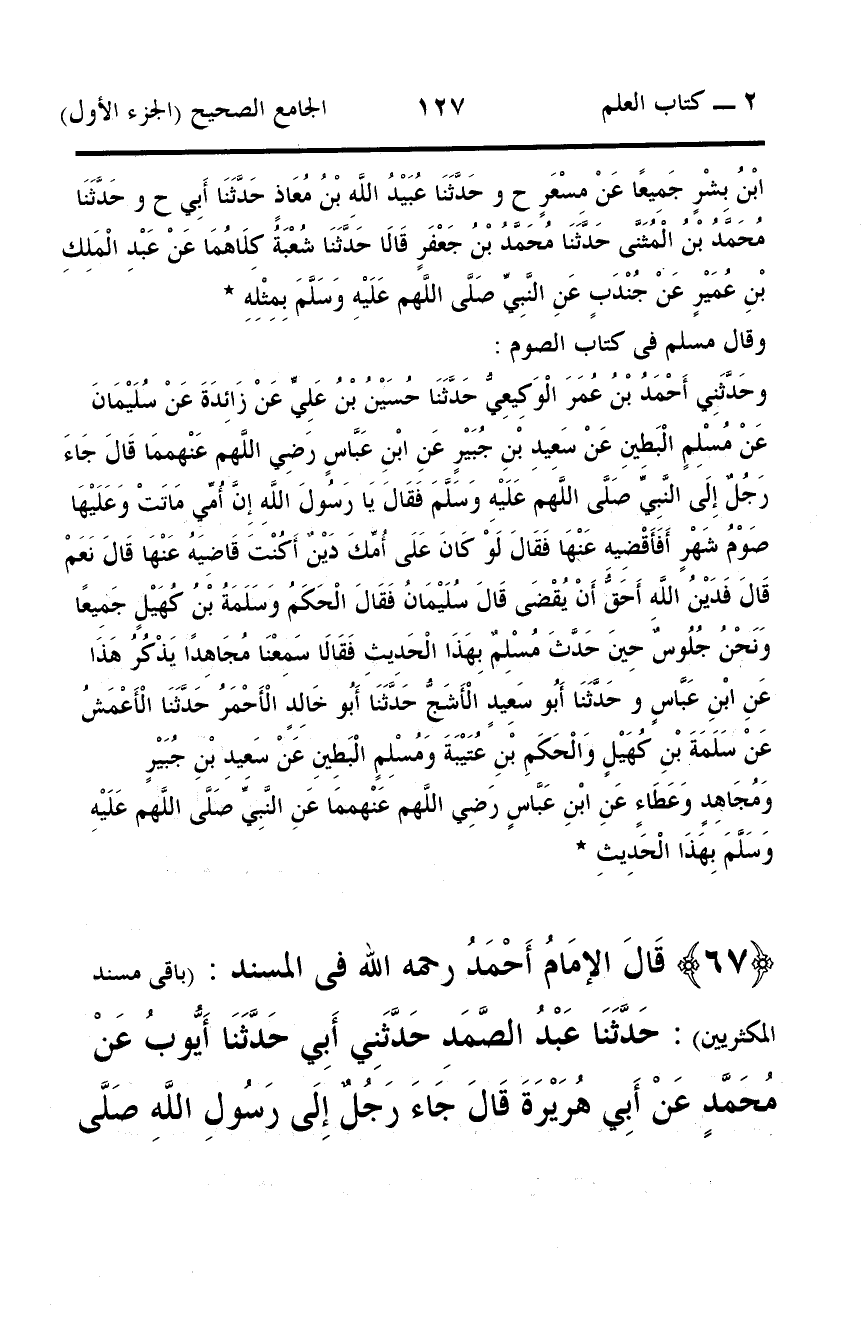 ٢ ــ كتاب العلم ١٢٧ الجامع الصحيح (الجزء الأول)
ابْنُ بِشْرٍ جَمِيعًا عَنْ مِسْعَرٍ ح و حَدَّثَنَا عُبَيْدُ اللَّهِ بْنُ مُعَاذٍ حَدَّثَنَا أَبِي ح و حَدَّثَنَا
مُحَمَّدُ بْنُ الْمُثَنَّى حَدَّثَنَا مُحَمَّدُ بْنُ جَعْفَرٍ قَالَا حَدَّثَنَا شُعْبَةُ كِلَاهُمَا عَنْ عَبْدِ الْمَلِكِ
بْنِ عُمَيْرٍ عَنْ جُنْدَبٍ عَنِ النَّبِيِّ صَلَّى اللهم عَلَيْهِ وَسَلَّمَ بِمِثْلِهِ *
وقال مسلم فى كتاب الصوم :
وحَدَّثَنِي أَحْمَدُ بْنُ عُمَرَ الْوَكِيعِيُّ حَدَّثَنَا حُسَيْنُ بْنُ عَلِيٍّ عَنْ زَائِدَةَ عَنْ سُلَيْمَانَ
عَنْ مُسْلِمٍ الْبَطِينِ عَنْ سَعِيدِ بْنِ جُبَيْرٍ عَنِ ابْنِ عَبَّاسٍ رَضِي اللهم عَنْهممَا قَالَ جَاءَ
رَجُلٌ إِلَى النَّبِيِّ صَلَّى اللهم عَلَيْهِ وَسَلَّمَ فَقَالَ يَا رَسُولَ اللَّهِ إِنَّ أُمِّي مَاتَتْ وَعَلَيْهَا
صَوْمُ شَهْرٍ أَفَأَقْضِيهِ عَنْهَا فَقَالَ لَوْ كَانَ عَلَى أُمِّكَ دَيْنٌ أَكُنْتَ قَاضِيَهُ عَنْهَا قَالَ نَعَمْ
قَالَ فَدَيْنُ اللَّهِ أَحَقُّ أَنْ يُقْضَى قَالَ سُلَيْمَانُ فَقَالَ الْحَكَمُ وَسَلَمَةُ بْنُ كُهَيْلٍ جَمِيعًا
وَنَحْنُ جُلُوسٌ حِينَ حَدَّثَ مُسْلِمٌ بِهَذَا الْحَدِيثِ فَقَالَا سَمِعْنَا مُجَاهِدًا يَذْكُرُ هَذَا
عَنِ ابْنِ عَبَّاسٍ و حَدَّثَنَا أَبُو سَعِيدٍ الْأَشَجُّ حَدَّثَنَا أَبُو خَالِدٍ الْأَحْمَرُ حَدَّثَنَا الْأَعْمَشُ
عَنْ سَلَمَةَ بْنِ كُهَيْلٍ وَالْحَكَمِ بْنِ عُتَيْبَةَ وَمُسْلِمٍ الْبَطِينِ عَنْ سَعِيدِ بْنِ جُبَيْرٍ
وَمُجَاهِدٍ وَعَطَاءٍ عَنِ ابْنِ عَبَّاسٍ رَضِي اللهم عَنْهممَا عَنِ النَّبِيِّ صَلَّى اللهم عَلَيْهِ
وَسَلَّمَ بِهَذَا الْحَدِيثِ *
﴿٦٧﴾ قَالَ الإِمَامُ أَحْمَدُ رحمه الله فى المسند : (باقى مسند
المكثريين) : حَدَّثَنَا عَبْدُ الصَّمَدِ حَدَّثَنِي أَبِي حَدَّثَنَا أَيُّوبُ عَنْ
مُحَمَّدٍ عَنْ أَبِي هُرَيْرَةَ قَالَ جَاءَ رَجُلٌ إِلَى رَسُولِ اللَّهِ صَلَّى